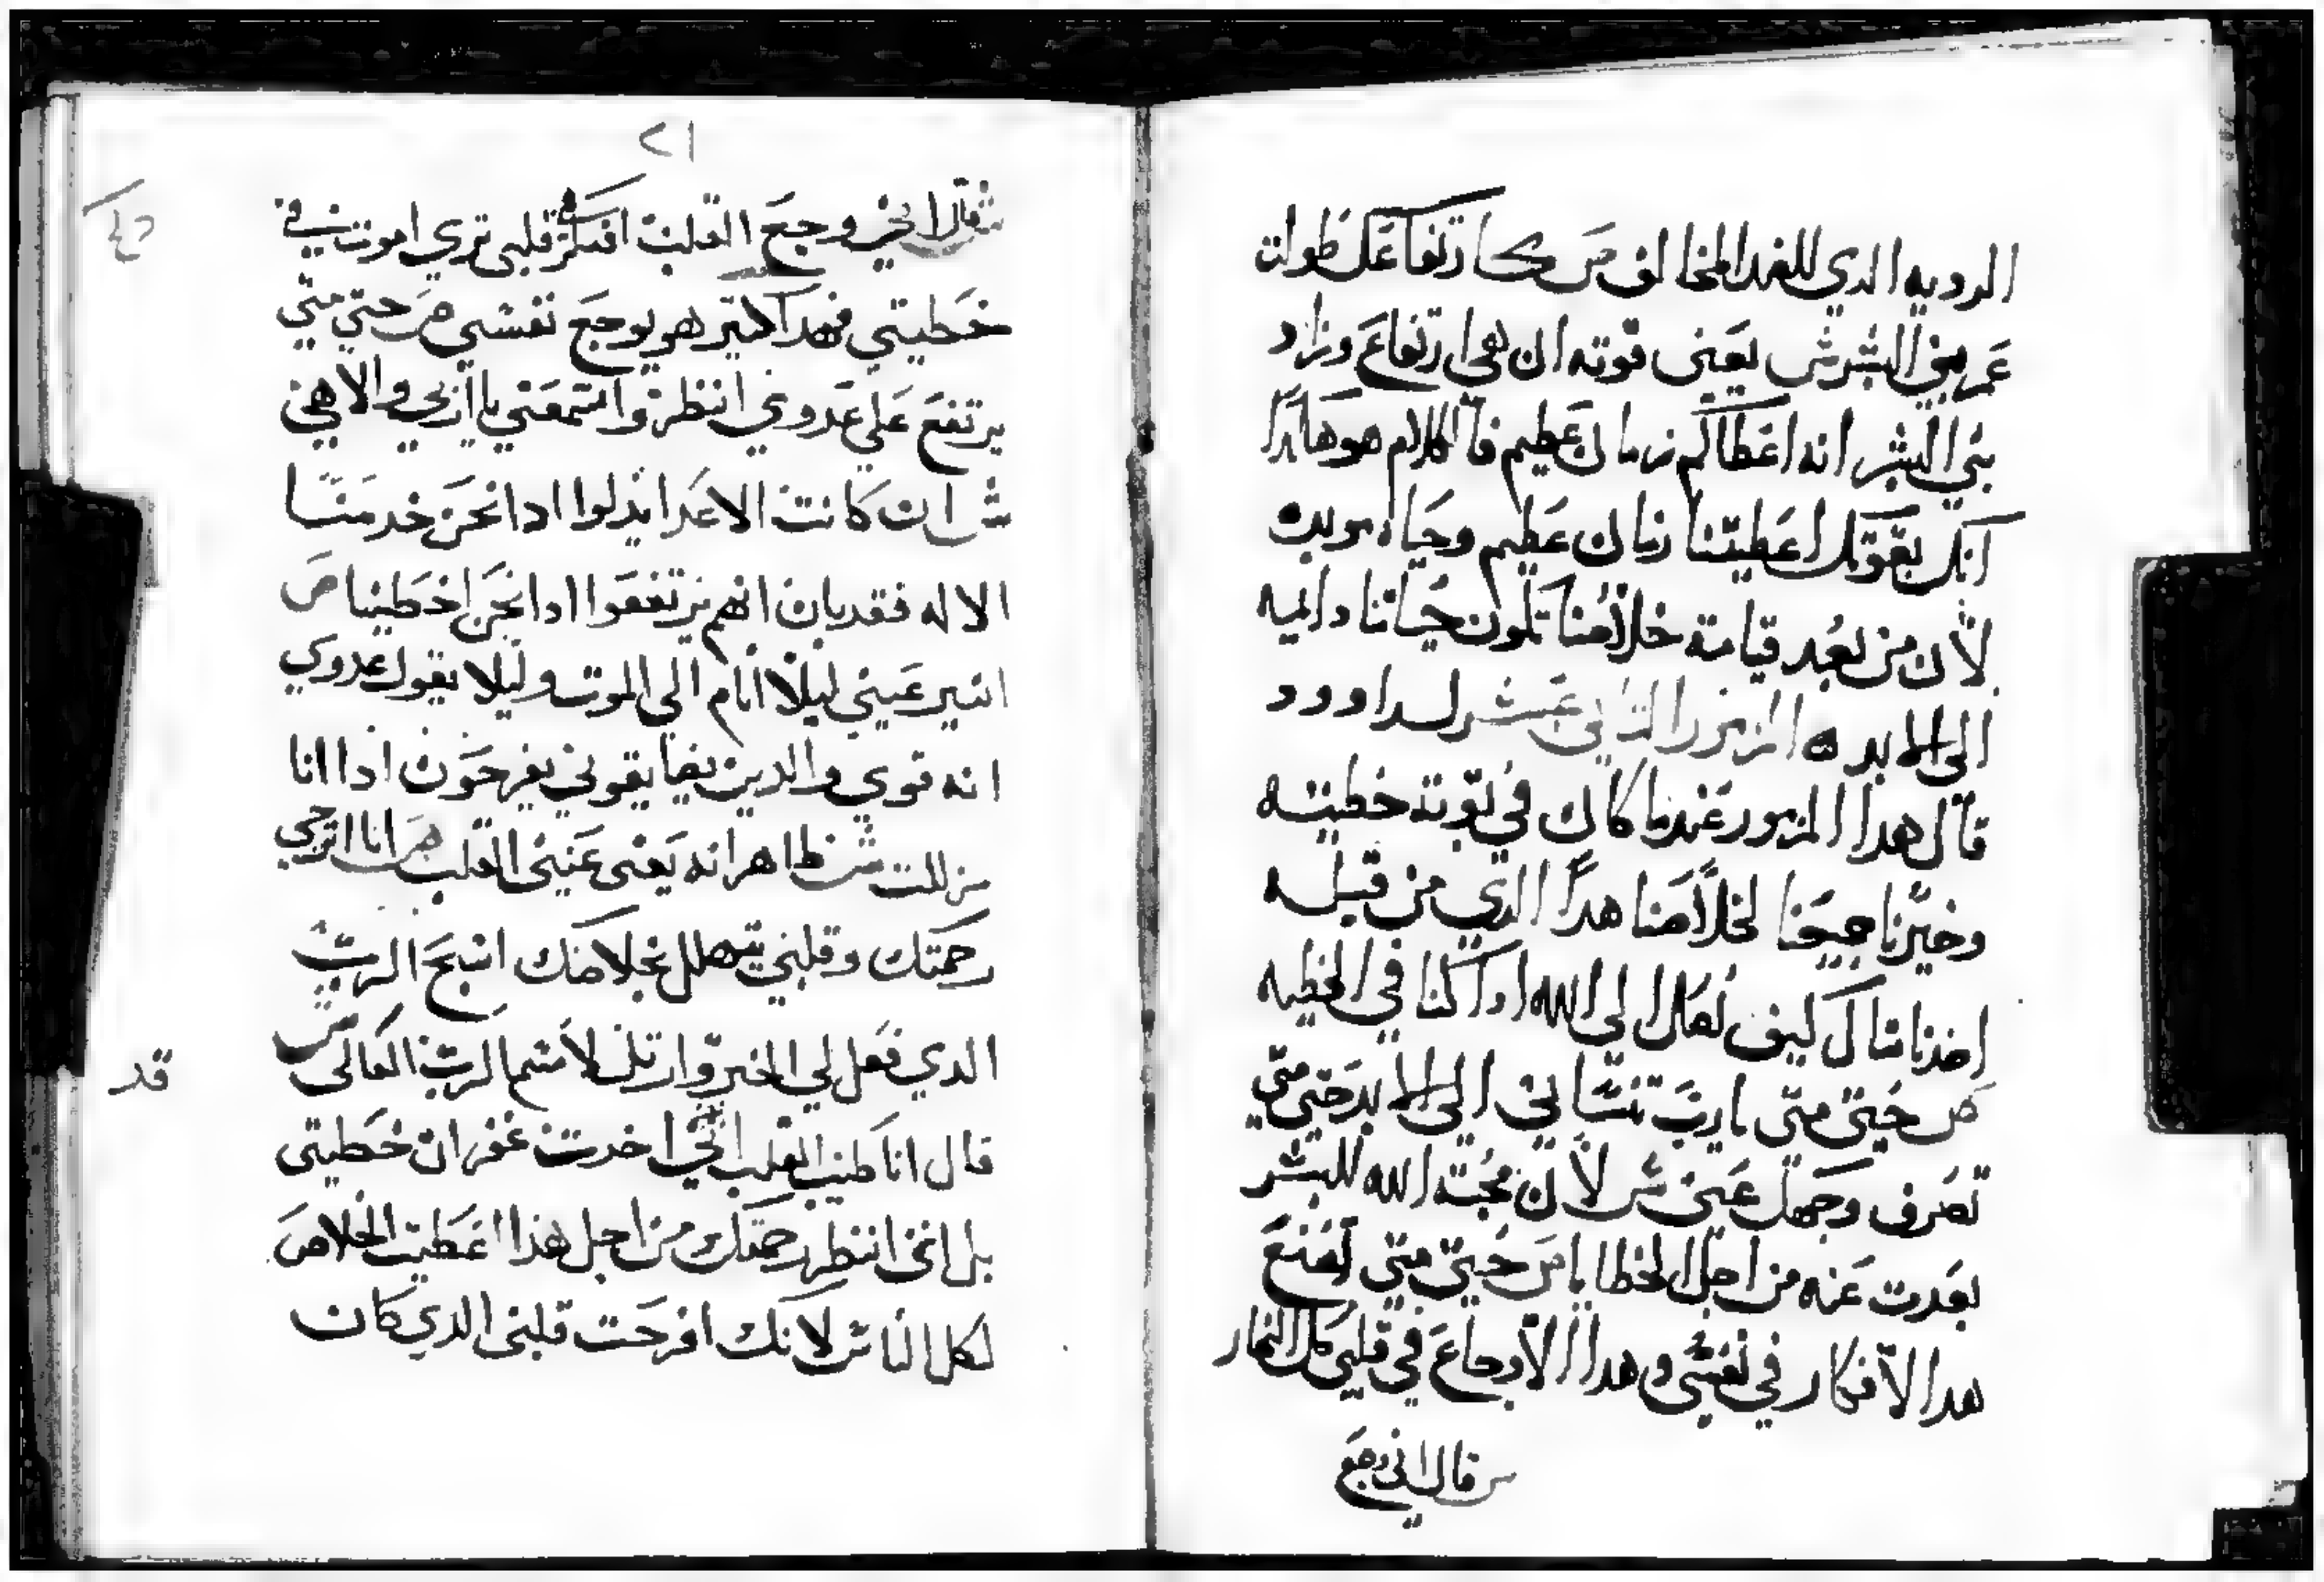 الرديه الدي للغدا المخالف ص كارتفاعك طولت
عمر بني البشر ش يعني قوته ان هي ارتفاع وزاد
بني البشر انه اعطاكم زمان عظيم فا الكلام هو هاكدا
انك بقوتك اعطيتنا زمان عظيم وحياه موبده
لان من بعد قيامة خلاصنا تكون حياتنا دايمه
الى الابد ه المزمور الثاني عشر لداوود
قال هدا المزمور عندما كان في توبته خطيته
وخيرنا جميعنا لخلاصنا هدا الدي من قبله
اخدنا مثال كيف نعمل الي الله اداكنا في الخطيه
ص حتي متي يارب تنساني الى الابد حتي متي
تصرف وجهك عني ش لان محبة الله للبشر
بعدت عنه من اجل الخطايا ص حتي متي تصنع
هدا الافكار في نفسي وهدا الاوجاع في قلبي كل النهار
ش قال اني وجع
٢١
ش قال اني وجع القلب افتكر قلبي تري اموت في
خطيتي فهدا اكتير هو يوجع نفسي ص حتي متي
يرتفع علي عدوي انتظر واستمعني يا ربي والاهي
ش ان كانت الاعدا يدلوا ادا نحن خدمنا
الاله فقد بان انهم يرتفعوا ادا نحن اخطينا ص
انير عيني ليلا انام الي الموت وليلا يقول عدوي
انه قوي والدين يضايقوني يفرحون ادا انا
زللت ش ظاهر انه يعني عيني القلب ص انا اترجي
رحمتك وقلبي يتهلل بخلاصك اسبح الرب
الدي فعل لي الخير وارتل لاسم الرب العالى ش
قال انا طيب القلب اني اخدت غفران خطيتى
بل انى انتظر رحمتك من اجل هذا اعطيت الخلاص
لكل الناس لانك افرحت قلبى الدي كان
قد